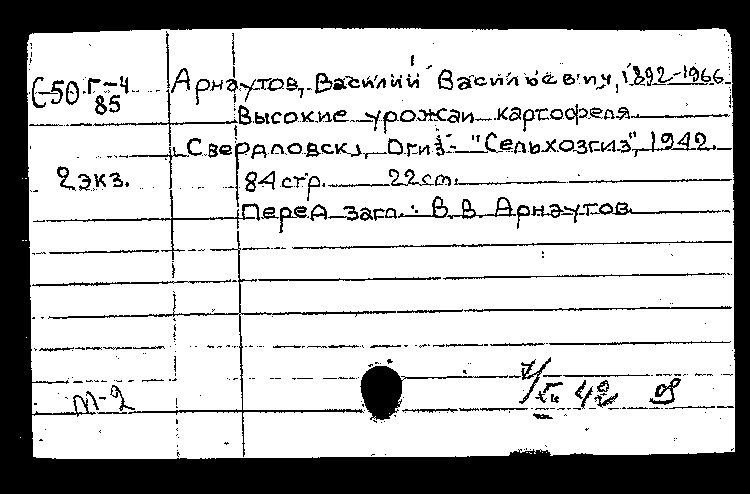 С50 Г-4
85
Арнаутов, Василий Васильевич, 1892-1966
Высокие урожаи картофеля.
Свердловск, Огиз - "Сельхозгиз", 1942.
2 экз.
84 стр. 22 cm.
Перед загл.: В.В. Арнаутов
М-2
42